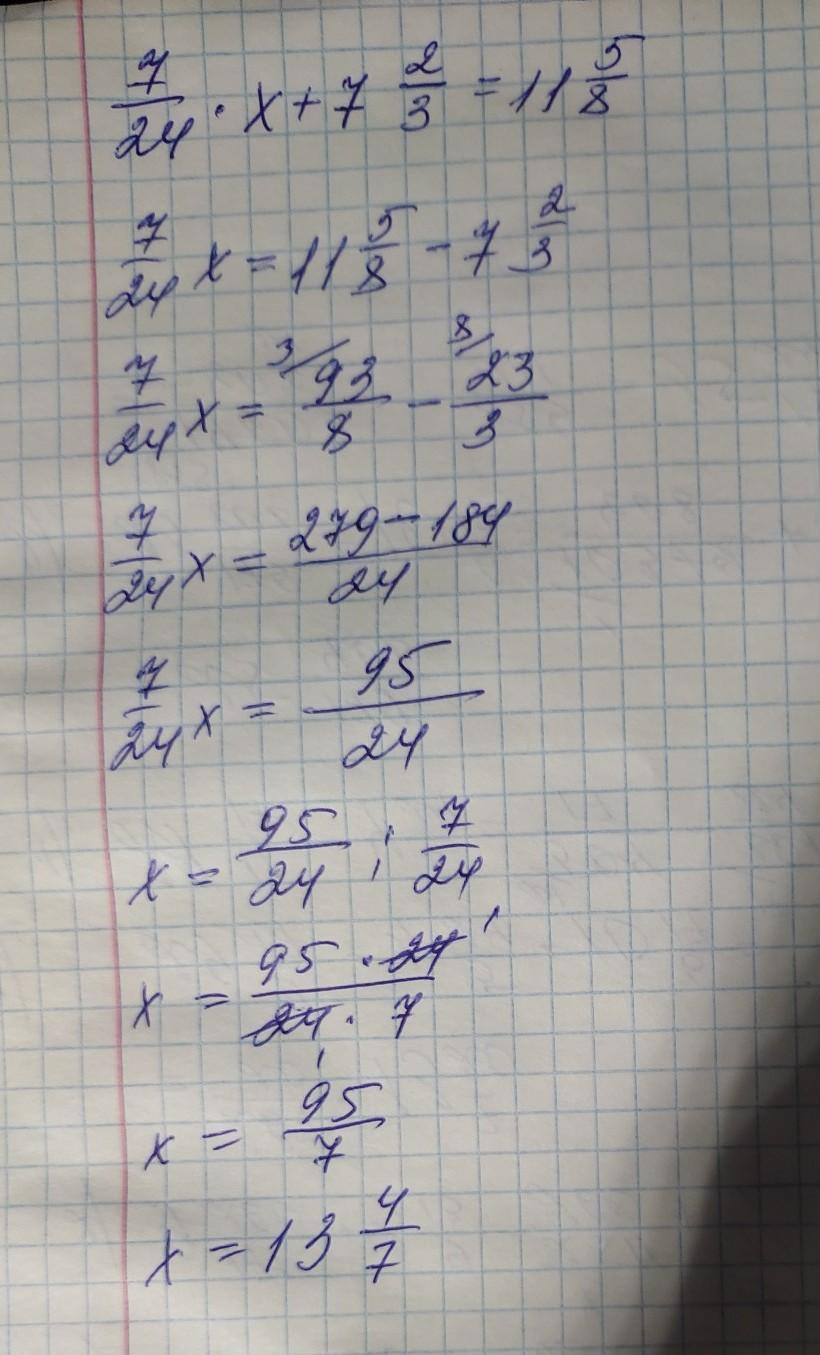 7/24 · x + 7 2/3 = 11 5/8
7/24 x = 11 5/8 - 7 2/3
7/24 x = 3/ 93/8 - 8/ 23/3
7/24 x = 279 - 184/24
7/24 x = 95/24
x = 95/24 : 7/24
x = 95 · 24 1/24 · 7 1
x = 95/7
x = 13 4/7